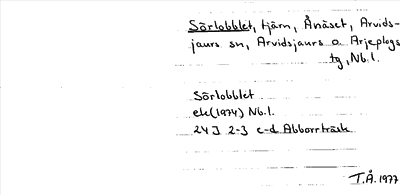 Sörlobblet, tjärn, Ånäset, Arvids-
jaurs sn, Arvidsjaurs o Arjeplogs
tg, Nb.l.
Sörlobblet
ek (1974) Nb.l.
24J 2-3 c-d Abborrträsk
T.Å. 1977